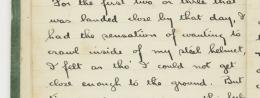 For the first two or three that
was landed close by that day, I
had the sensation of wanting to
crawl inside of my steel helmet,
I felt as tho' I could not get
close enough to the ground. But